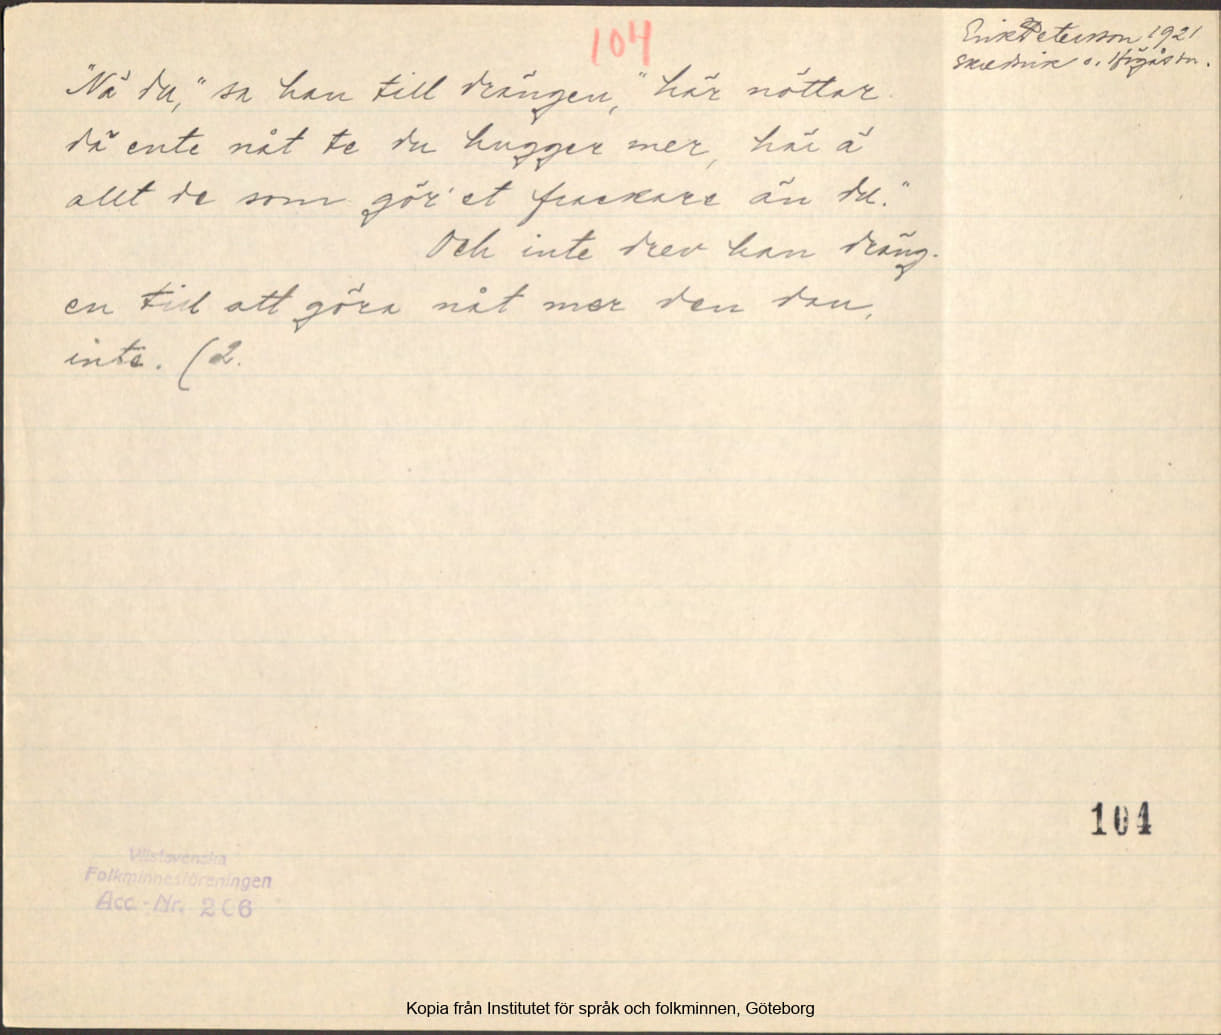 104
Erik Petersson 1921
Skredsvik o. Högås sn.
"Nå du," sa han till drängen, "här nöttar
dä ente nåt te du hugger mer, här ä
allt de som gör'et frackare än du."
Och inte drev han dräng-
en till att göra nåt mer den dan,
inte. (2.
104
Västsvenska
Folkminnesföreningen
Acc.-Nr. 206
Kopia från Institutet för språk och folkminnen, Göteborg